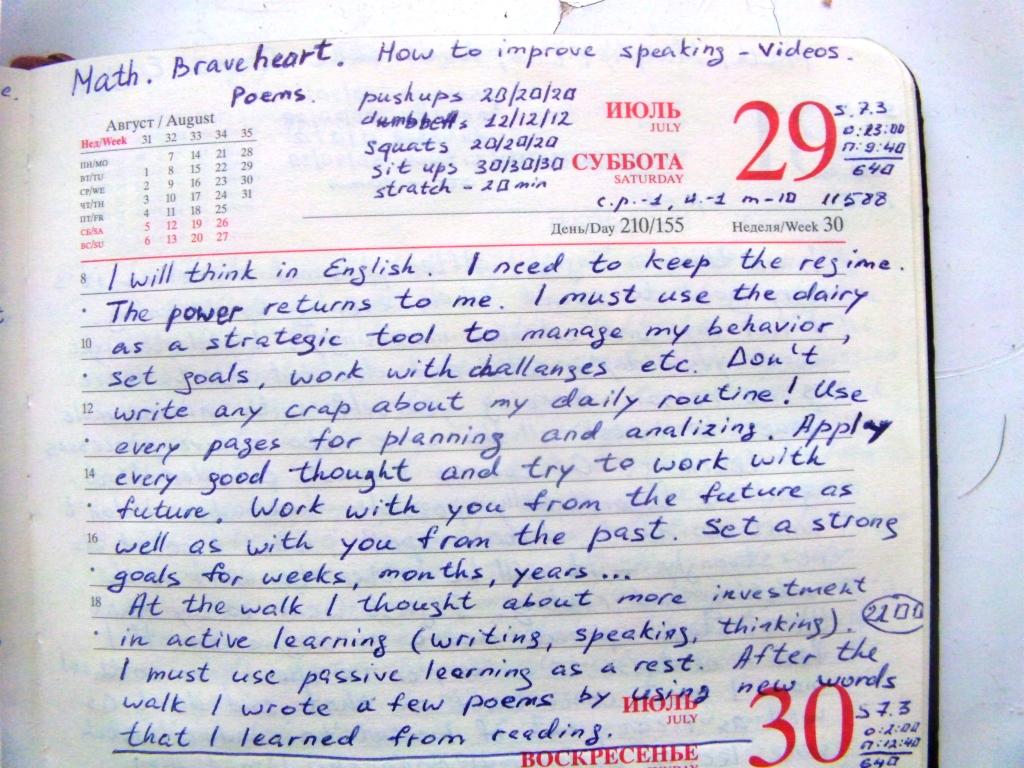 Math. Braveheart. How to improve speaking - Videos.
Poems.
pushups 20/20/20
dumbbells 12/12/12
squats 20/20/20
sit ups 30/30/30
stratch - 20 min
Август / August
Нед/Week 31 32 33 34 35
ПН/MO 7 14 21 28
ВТ/TU 1 8 15 22 29
СР/WE 2 9 16 23 30
ЧТ/TH 3 10 17 24 31
ПТ/FR 4 11 18 25
СБ/SA 5 12 19 26
ВС/SU 6 13 20 27
ИЮЛЬ
JULY
СУББОТА
SATURDAY
29
S 7.3
0:23:00
П: 9:40
640
c.p.-1, и.-1 m-10 11588
День/Day 210/155 Неделя/Week 30
8 I will think in English. I need to keep the regime.
The power returns to me. I must use the dairy
10 as a strategic tool to manage my behavior,
set goals, work with challanges etc. Don't
12 write any crap about my daily routine! Use
every pages for planning and analizing. Apply
14 every good thought and try to work with
future. Work with you from the future as
16 well as with you from the past. Set a strong
goals for weeks, months, years...
18 At the walk I thought about more investment
in active learning (writing, speaking, thinking). 2100
I must use passive learning as a rest. After the
walk I wrote a few poems by using new words
that I learned from reading.
ИЮЛЬ
JULY
ВОСКРЕСЕНЬЕ
SUNDAY
30
S 7.3
0:2:00
П:12:40
640